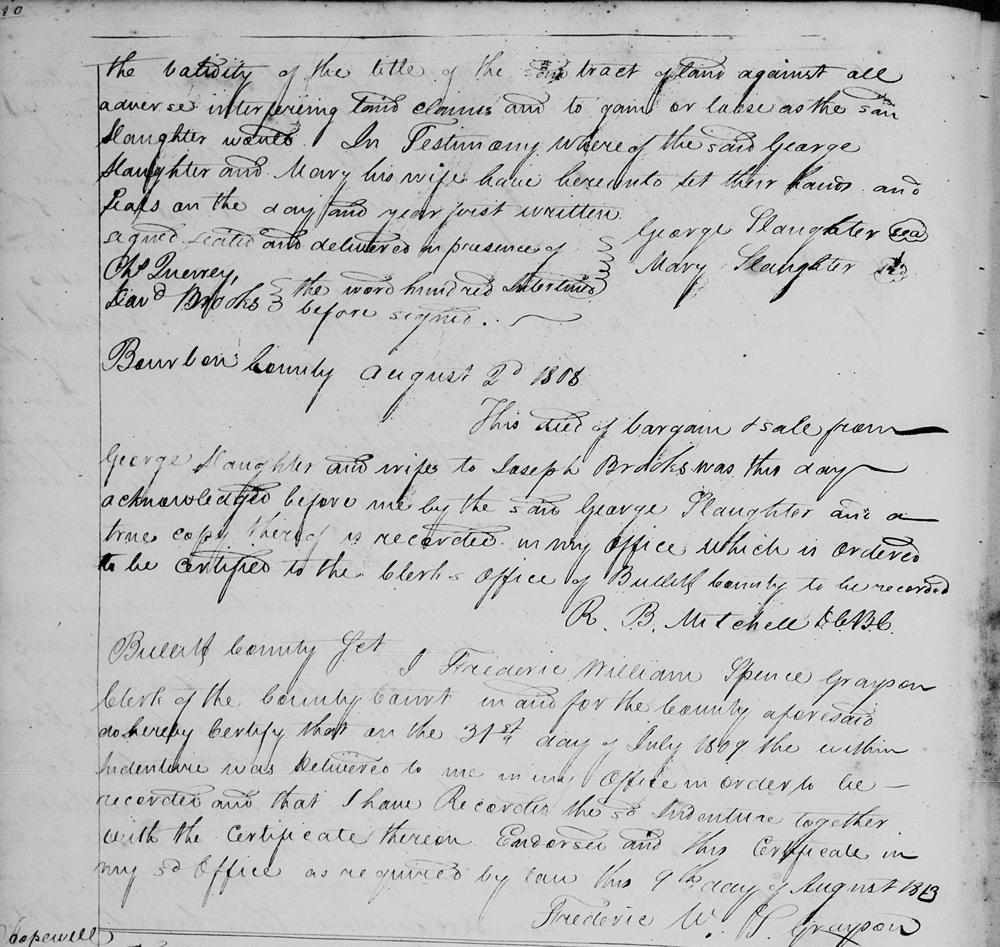 the validity of the title of the tract of land against all
adverse interfering land claims and to gain or loose as the said
Slaughter would. In Testimony whereof the said George
Slaughter and Mary his wife have hereunto set their hands and
Seals on the day and year first written
signed sealed and delivered in presence of
George Slaughter seal
Chs Querrey,
Mary Slaughter
David Brooks the word hundred Interlined
before signed.
Bourbon County August 2d 1808
This deed of bargain & sale from
George Slaughter and wife to Joseph Brooks was this day
acknowledged before me by the said George Slaughter and a
true copy thereof is recorded in my office which is ordered
to be Certified to the Clerks Office of Bullitt County to be recorded
R. B. Mitchell
Bullitt County Sct
I Frederic William Spence Grayson
Clerk of the County Court in and for the County aforesaid
do hereby Certify that on the 31st day of July 1809 the within
Indenture was Delivered to me in my Office in order to be
recorded and that I have Recorded the sd Indenture together
with the Certificate thereon Endorsed and this Certificate in
my sd Office as required by law this 9th day of August 1813
Frederic W. S. Grayson
Hopewell